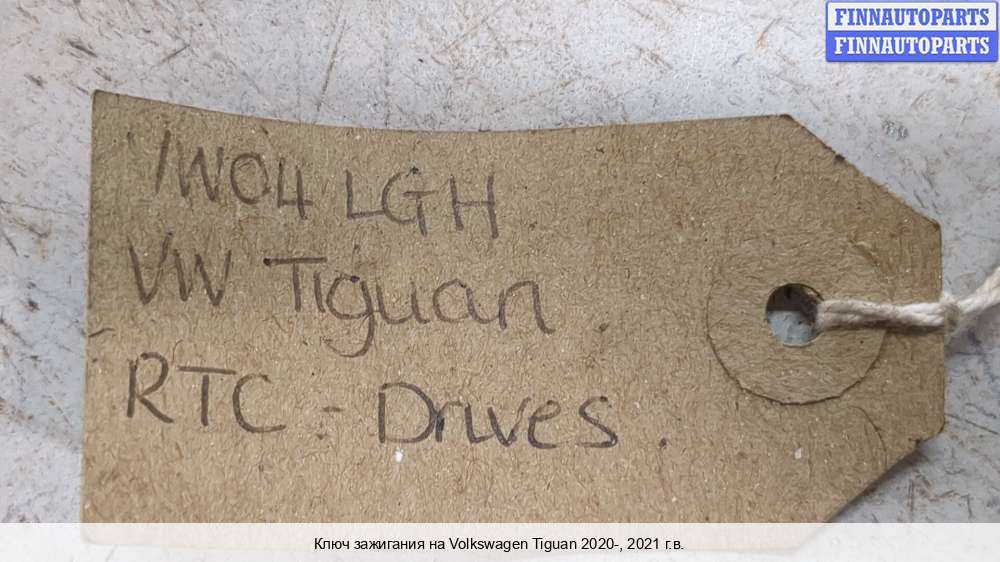 FINNAUTOPARTS
FINNAUTOPARTS
VW04 LGH
VW Tiguan.
RTC - Drives.
Ключ зажигания на Volkswagen Tiguan 2020-, 2021 г.в.